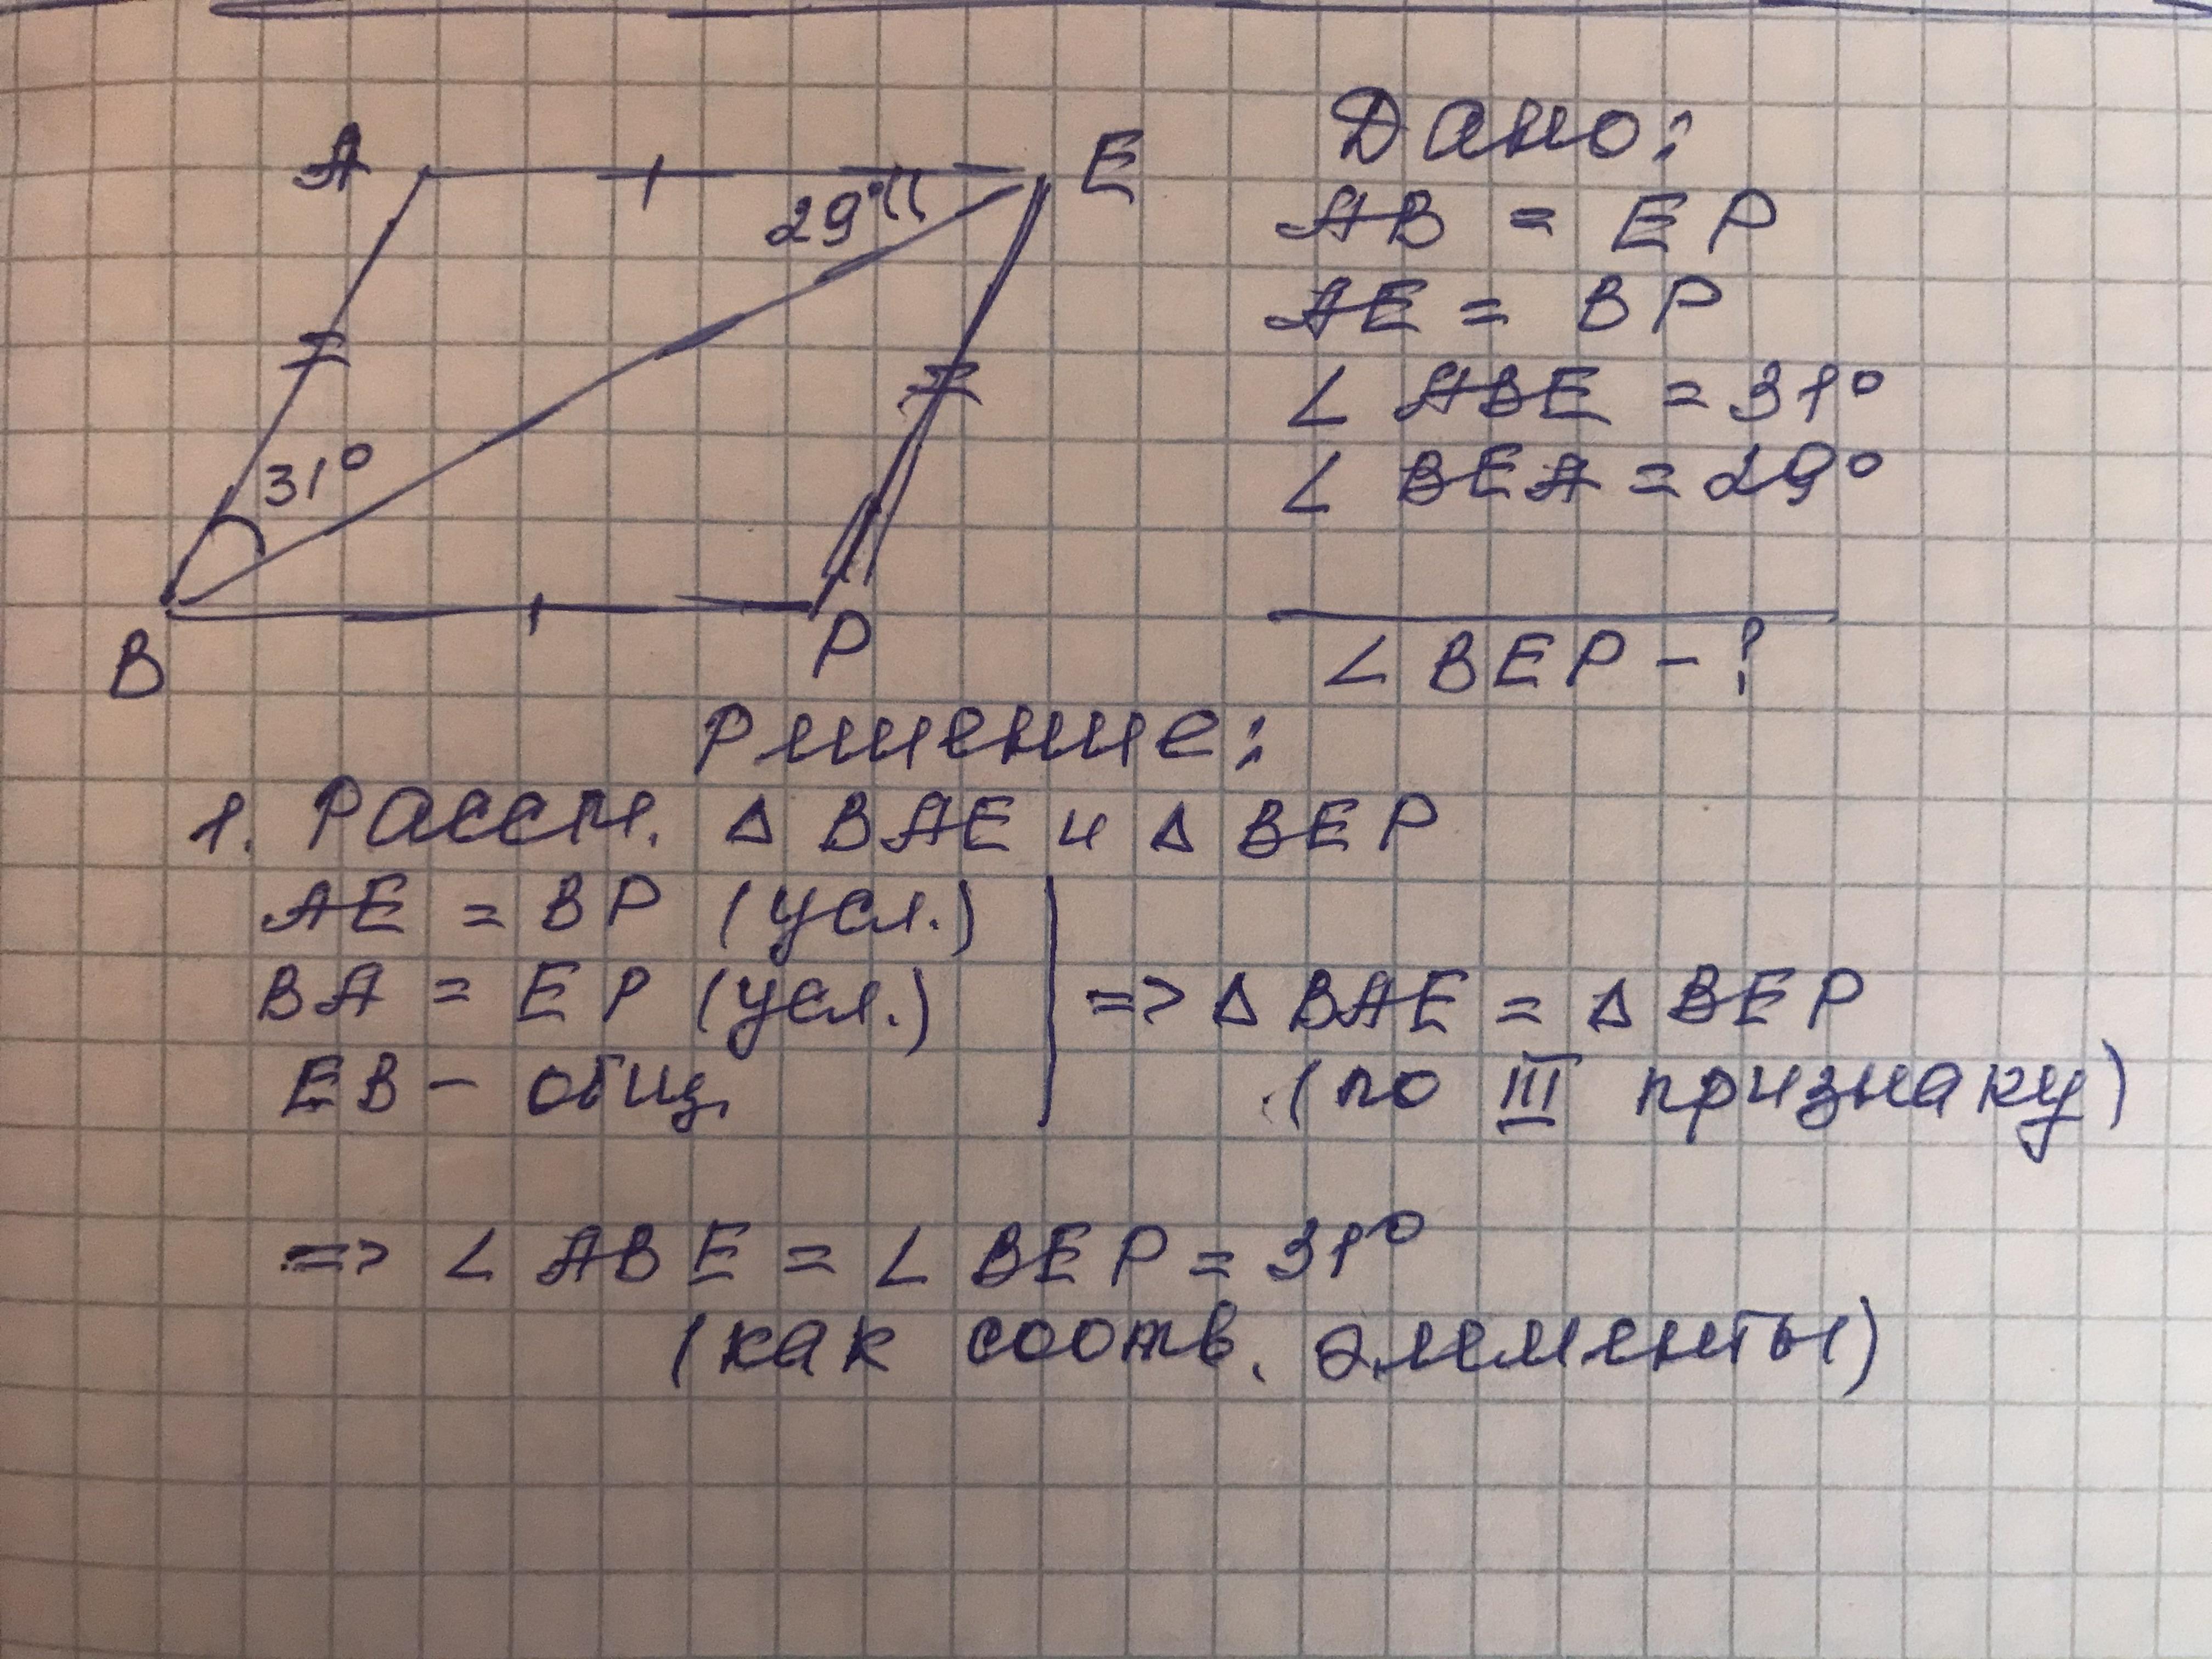 A
E
29°
31°
B
P
Дано:
AB = EP
AE = BP
∠ ABE = 31°
∠ BEA = 29°
∠ BEP - ?
Решение:
1. Рассм. Δ BAE и Δ BEP
AE = BP (усл.)
BA = EP (усл.) => Δ BAE = Δ BEP
EB - общ. (по III признаку)
=> ∠ ABE = ∠ BEP = 31°
(как соотв. элементы)